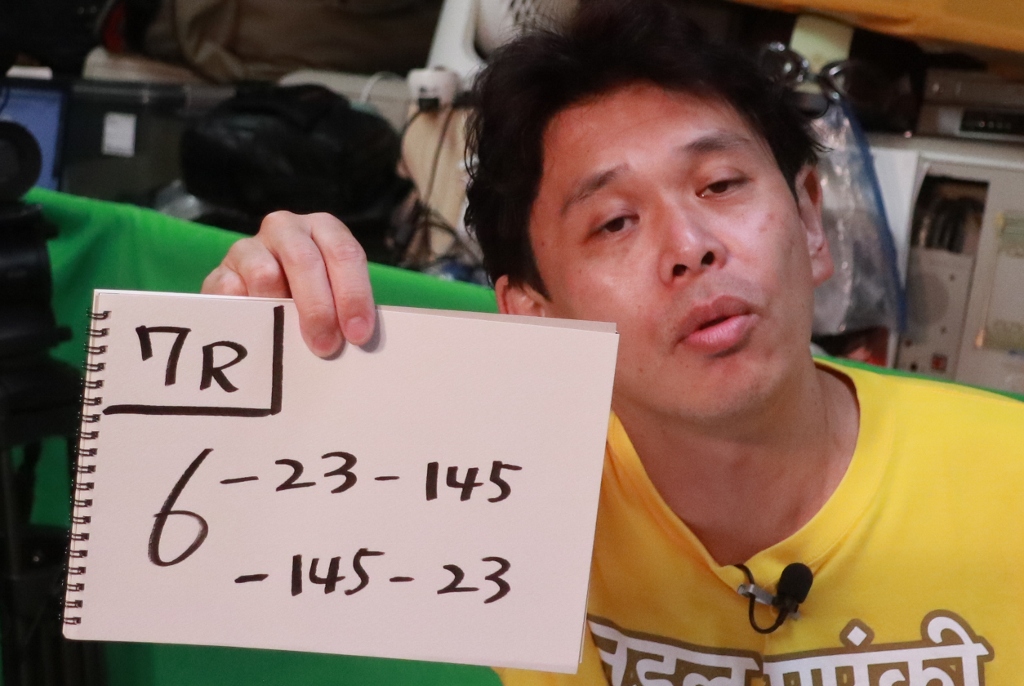 7R
6-23-145
-145-23